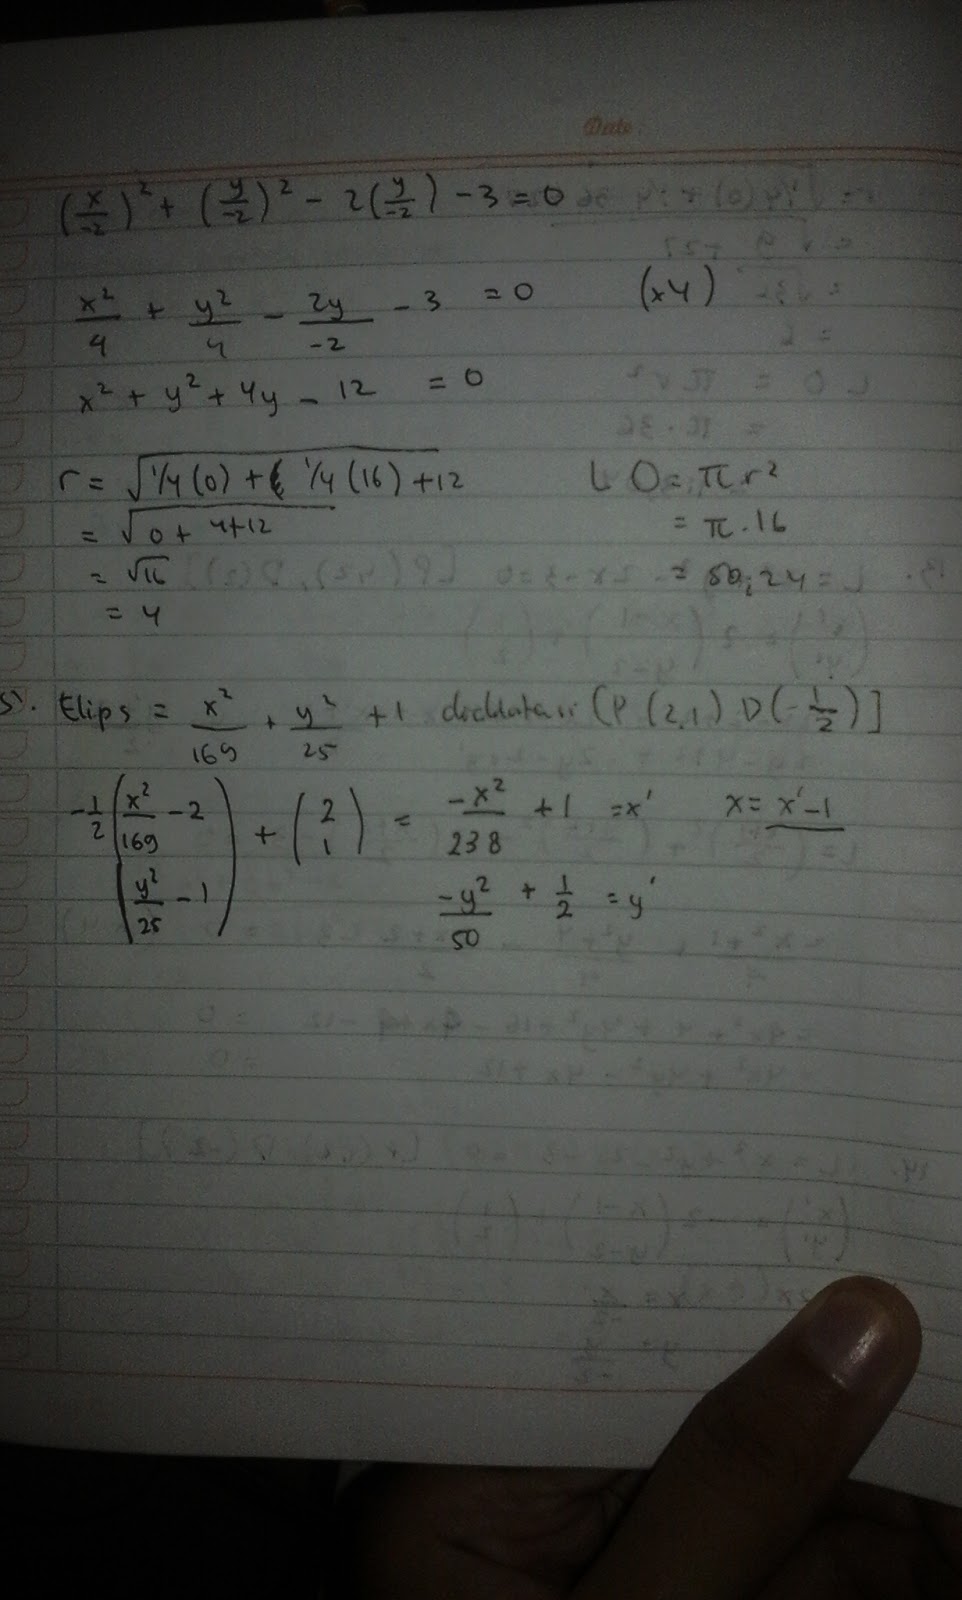 Date:
(x/-2)² + (y/-2)² - 2(y/-2) - 3 = 0
x²/4 + y²/4 - 2y/-2 - 3 = 0 (x4)
x² + y² + 4y - 12 = 0
r = √1/4(0) + 1/4(16) + 12 L O = π r²
= √0 + 4+12 = π . 16
= √16 = 50,24
= 4
5). Elips = x²/169 + y²/25 + 1 didilatasi [P (2,1) D(-1/2)]
-1/2 (x²/169 - 2) + (2) = -x²/238 + 1 = x' x = x'-1
(y²/25 - 1) (1) -y²/50 + 1/2 = y'